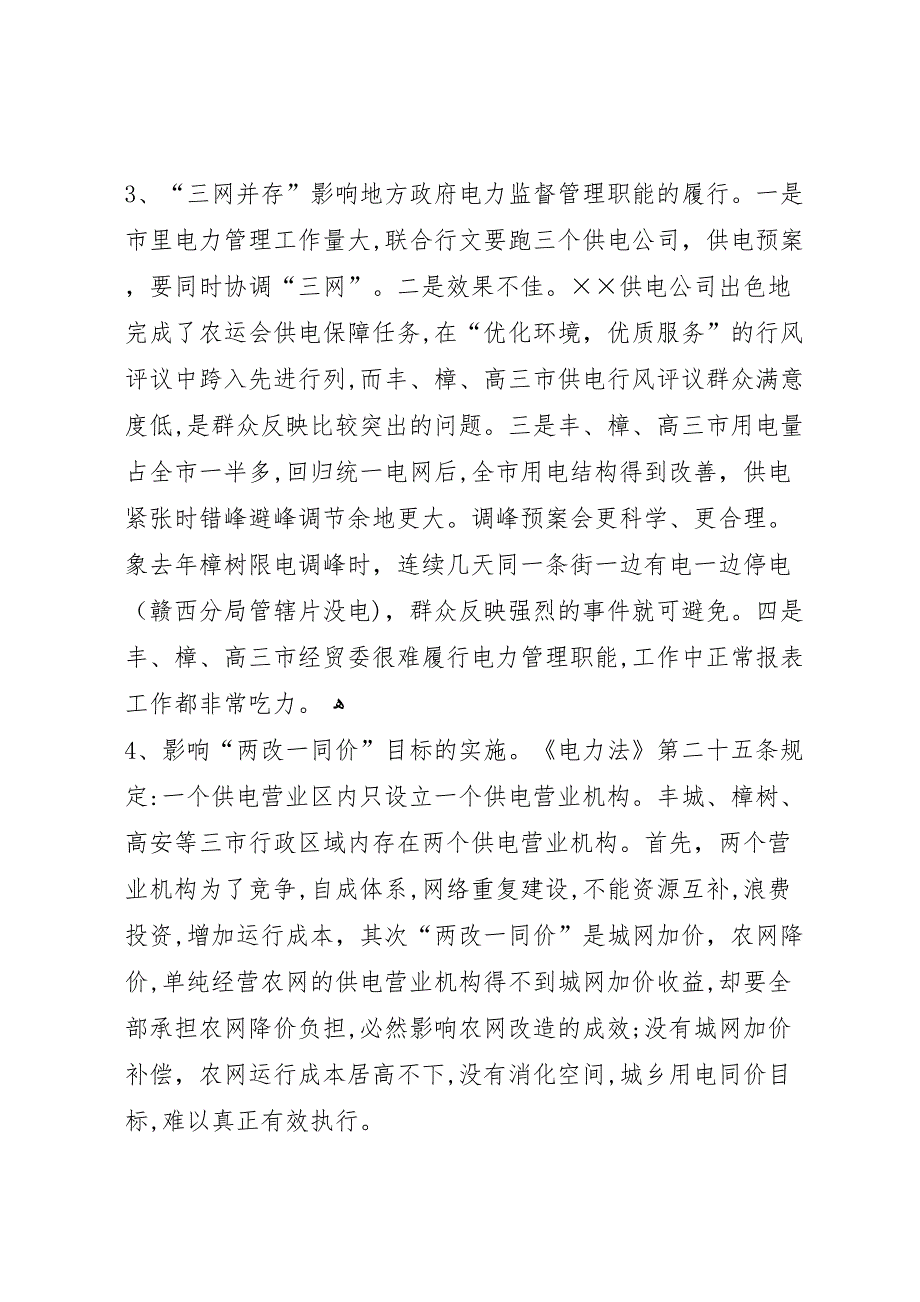 3、“三网并存”影响地方政府电力监督管理职能的履行。一是
市里电力管理工作量大,联合行文要跑三个供电公司，供电预案
，要同时协调“三网”。二是效果不佳。××供电公司出色地
完成了农运会供电保障任务,在“优化环境，优质服务”的行风
评议中跨入先进行列,而丰、樟、高三市供电行风评议群众满意
度低,是群众反映比较突出的问题。三是丰、樟、高三市用电量
占全市一半多,回归统一电网后,全市用电结构得到改善，供电
紧张时错峰避峰调节余地更大。调峰预案会更科学、更合理。
象去年樟树限电调峰时，连续几天同一条街一边有电一边停电
（赣西分局管辖片没电)，群众反映强烈的事件就可避免。四是
丰、樟、高三市经贸委很难履行电力管理职能,工作中正常报表
工作都非常吃力。 ﻫ
4、影响“两改一同价”目标的实施。《电力法》第二十五条规
定:一个供电营业区内只设立一个供电营业机构。丰城、樟树、
高安等三市行政区域内存在两个供电营业机构。首先，两个营
业机构为了竞争,自成体系,网络重复建设,不能资源互补,浪费
投资,增加运行成本，其次“两改一同价”是城网加价，农网降
价,单纯经营农网的供电营业机构得不到城网加价收益,却要全
部承担农网降价负担,必然影响农网改造的成效;没有城网加价
补偿，农网运行成本居高不下,没有消化空间,城乡用电同价目
标,难以真正有效执行。